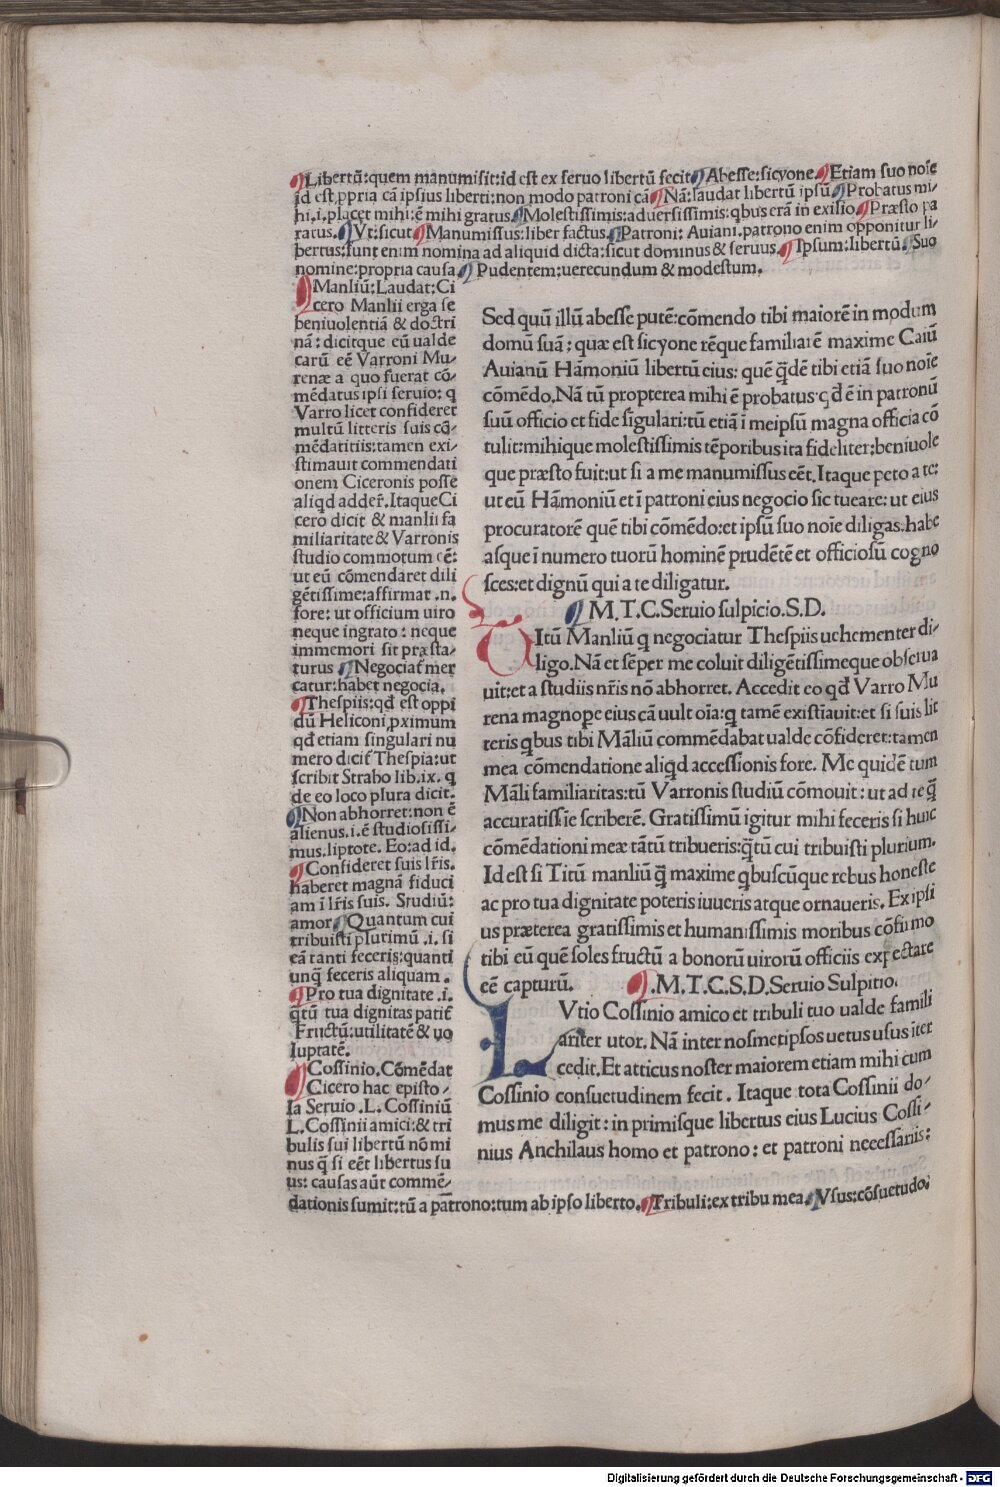 ¶Libertū:quem manumisit:id est ex seruo libertū fecit¶Abesse:sicyone.¶Etiam suo noīe
id est ꝓpria cā ipsius liberti:non modo patroni cā¶Nā:laudat libertū ipsū¶Probatus mi/
hi.i.placet mihi:ē mihi gratus¶Molestissimis:aduersissimis:qbus erā in exilio¶Præsto pa
ratus.¶Vt:sicut¶Manumissus:liber factus¶Patroni: Auiani.patrono enim opponitur li/
bertus:sunt enim nomina ad aliquid dicta:sicut dominus & seruus.¶Ipsum:libertū.¶Suo
nomine:propria causa¶Pudentem:uerecundum & modestum.
¶Manliū:Laudat:Ci
cero Manlii erga se
beniuolentiā & doctri
nā: dicitque eū ualde
carū eē Varroni Mu/
renæ a quo fuerat cō/
mēdatus ipsi seruio: q
Varro licet confideret
multū litteris suis cō/
mēdatitiis:tamen exi/
stimauit commendati
onem Ciceronis posse
aliqd adder̄.ItaqueCi
cero dicit & manlii fa
miliaritate& Varronis
studio commotum eē:
ut eū cōmendaret dili
gētissime:affirmat .n.
fore: ut officium uiro
neque ingrato: neque
immemori sit præsta/
turus ¶Negociat̄ mer
catur:habet negocia.
¶Thespiis:qđ est oppi
dū Heliconi ꝓximum
qđ etiam singulari nu
mero dicit̄ Thespia:ut
scribit Strabo lib.ix. q
de eo loco plura dicit.
¶Non abhorret:non ē
alienus.i.ē studiosissi/
mus.liptote. Eo:ad id.
¶Confideret suis lr̄is.
haberet magnā fiduci
am ī lr̄is suis. Studiū:
amor¶Quantum cui
tribuisti plurimū .i. si
eā tanti feceris:quanti
unq̄ feceris aliquam.
¶Pro tua dignitate .i.
q̄tū tua dignitas patit̄
Fructū:utilitatē & uo
luptatē.
¶Cossinio. Cōmēdat
Cicero hac episto/
la Seruio .L. Cossiniū
L. Cossinii amici:& tri
bulis sui libertū nō mi
nus q̄ si eēt libertus su
us: causas aūt commē/
dationis sumit:tū a patrono:tum ab ipso liberto.¶Tribuli:ex tribu mea.¶Vsus:cōsuetudo:
Sed quū illū abesse putē:cōmendo tibi maiorē in modum
domū suā: quæ est sicyone rēque familiarē maxime Caiū
Auianū Hāmoniū libertū eius: quē q̄dē tibi etiā suo noīe
cōmēdo.Nā tū propterea mihi ē probatus: qđ ē in patronū
suū officio et fide sīgulari:tū etiā ī meipsū magna officia cō
tulit:mihique molestissimis tēporibus ita fideliter:beniuole
que præsto fuit:ut si a me manumissus eēt.Itaque peto a te:
ut eū Hāmoniū et ī patroni eius negocio sic tueare: ut eius
procuratorē quē tibi cōmēdo:et ipsū suo noīe diligas:habe
asque ī numero tuorū hominē prudētē et officiosū cogno
sces:et dignū qui a te diligatur.
¶ M.T.C.Seruio sulpicio.S.D.
TItū Manliū q negociatur Thespiis uehementer di/
ligo.Nā et sēper me coluit diligētissimeque obserua
uit:et a studiis nr̄is nō abhorret. Accedit eo qđ Varro Mu
rena magnope eius cā uult oīa:q tamē existiauit:et si suis lit
teris qbus tibi Māliū commēdabat ualde cōfideret:tamen
mea cōmendatione aliqd accessionis fore. Me quidē tum
Māli familiaritas:tū Varronis studiū cōmouit: ut ad te q̄
accuratissīe scriberē. Gratissimū igitur mihi feceris si huic
cōmēdationi meæ tātū tribueris:q̄tū cui tribuisti plurium.
Id est si Titū manliū q̄ maxime qbuscūque rebus honeste
ac pro tua dignitate poteris iuueris atque ornaueris. Ex ipsi
us præterea gratissimis et humanissimis moribus cōfirmo
tibi eū quē soles fructū a bonorū uirorū officiis expectare
eē capturū. ¶.M.T.C.S.D.Seruio Sulpitio.
LVtio Cossinio amico et tribuli tuo ualde famili
ariter utor. Nā inter nosmetipsos uetus usus īter
cedit.Et atticus noster maiorem etiam mihi cum
Cossinio consuetudinem fecit. Itaque tota Cossinii do/
mus me diligit: in primisque libertus eius Lucius Cossi/
nius Anchilaus homo et patrono: et patroni necessariis:
Digitalisierung gefördert durch die Deutsche Forschungsgemeinschaft - DFG